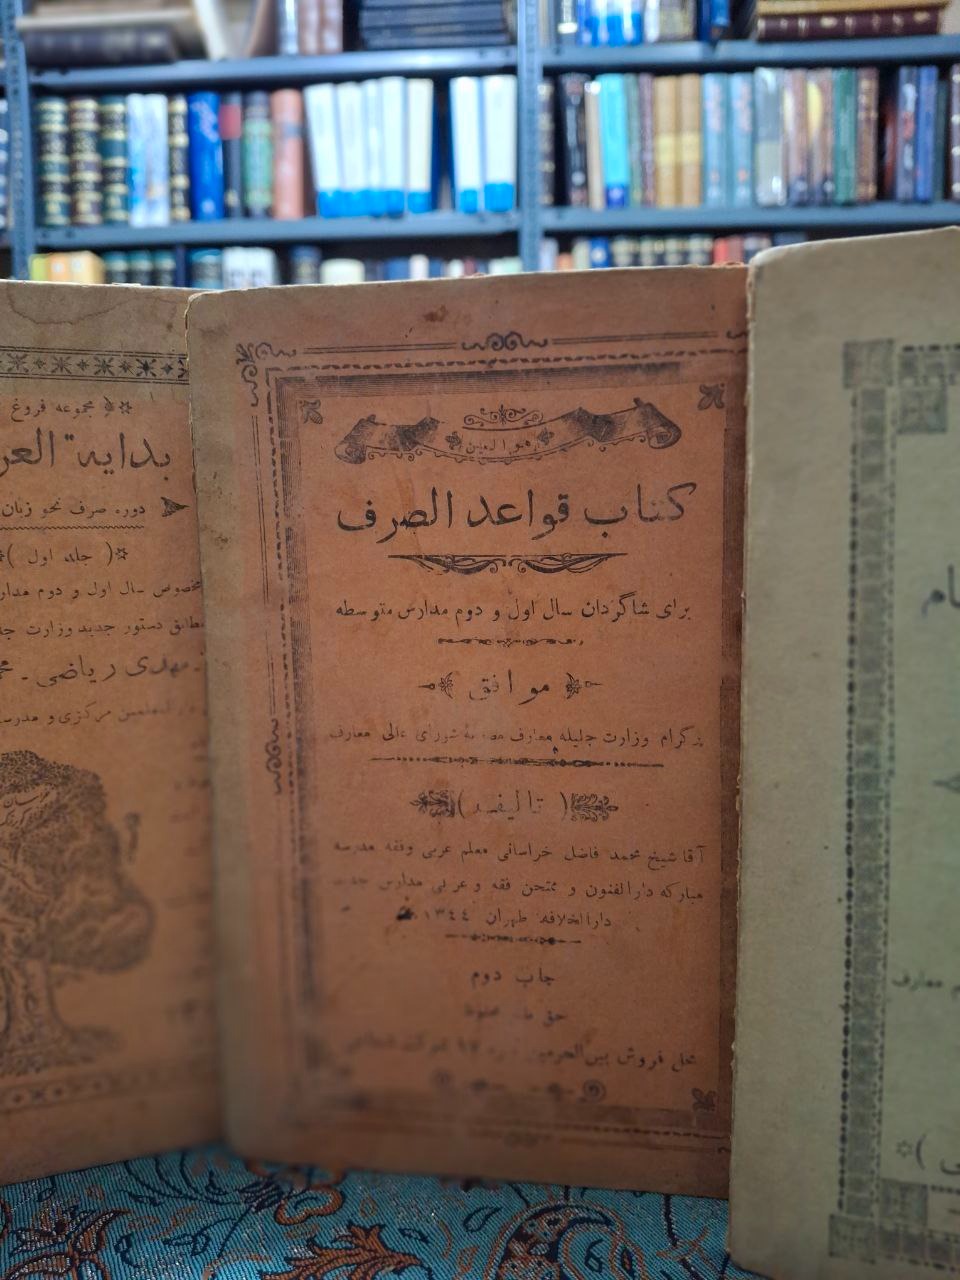 مجموعه فروغ
بدایة العر
دوره صرف نحو زبان
( جلد اول )
مخصوص سال اول و دوم مدار
مطابق دستور جدید وزارت
مهدی ریاضی
مرکزی و مدرسه
هو المعین
کتاب قواعد الصرف
برای شاگردان سال اول و دوم مدارس متوسطه
موافق
پرگرام وزارت جلیله معارف شورای عالی معارف
( تالیف )
آقا شیخ محمد فاضل خراسانی معلم عربی وفقه مدرسه
مبارکه دارالفنون و ممتحن فقه و عربی مدارس
دارالخلافه طهران ۱۳٤٤
چاپ دوم
حق
محل فروش بین‌الحرمین
معارف